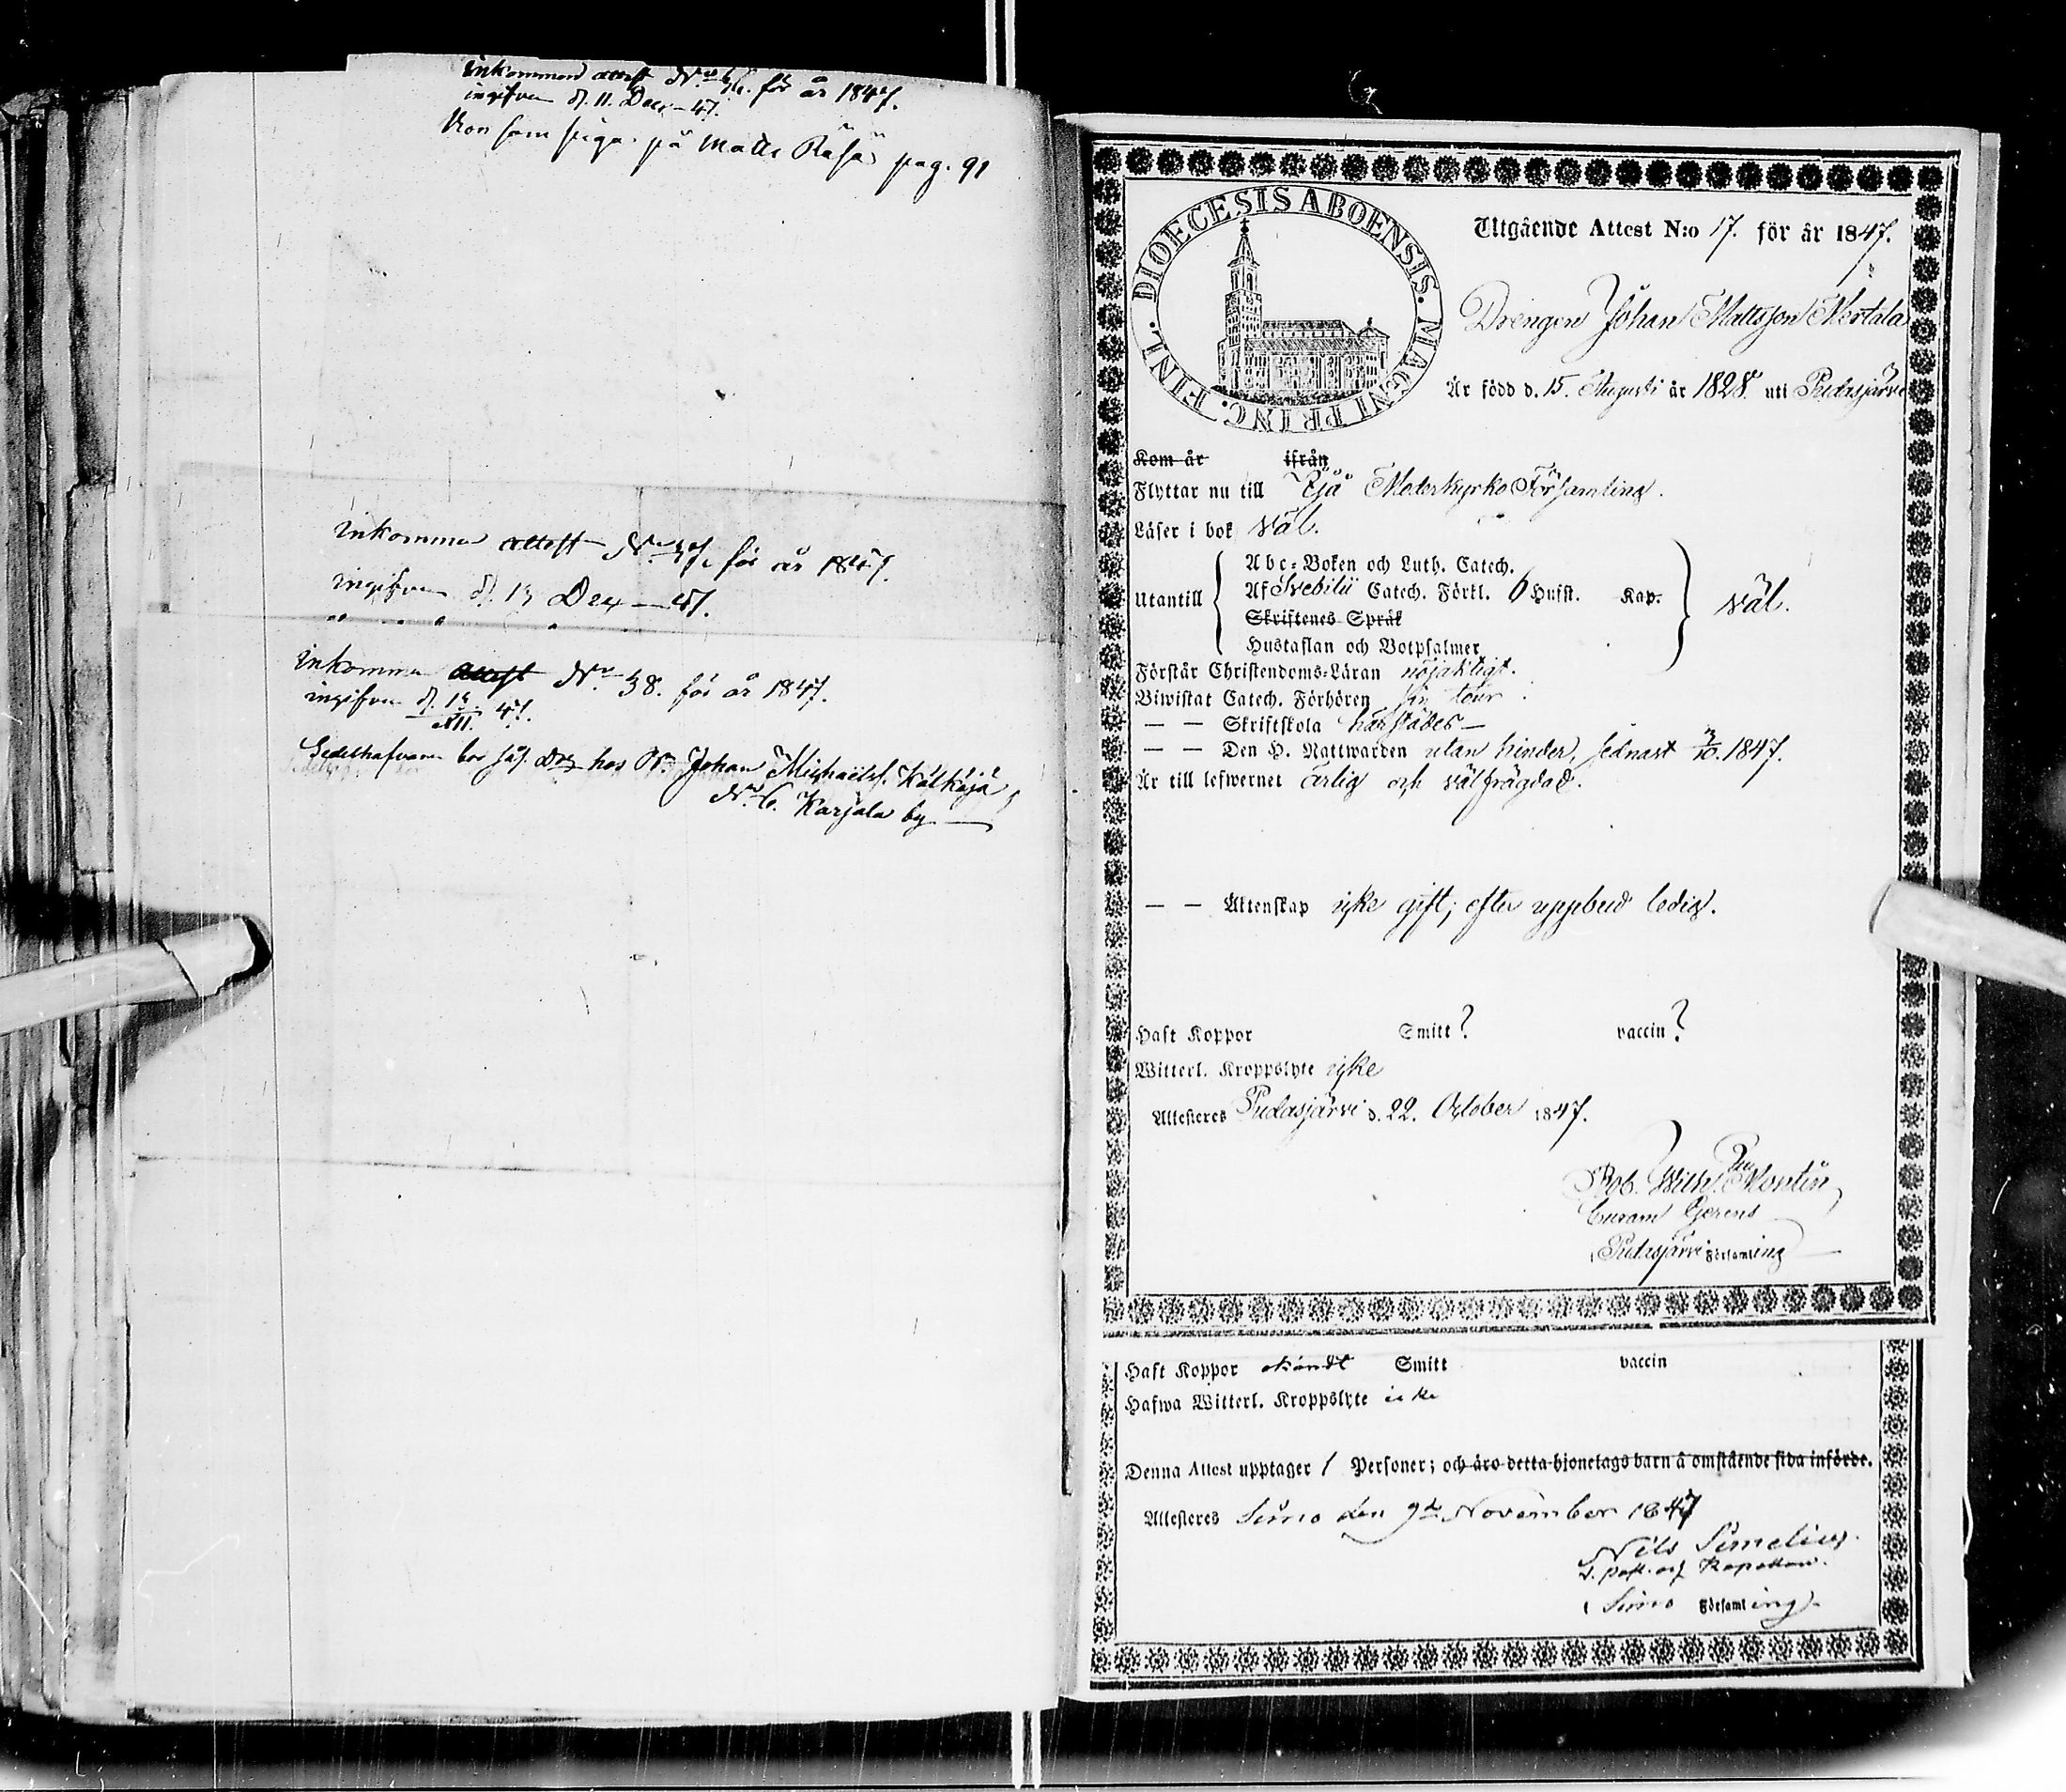 Inkommen attest No 36. för år 1847.
ingifven d. 11. Dec. 47.
Kon som piga på Matts Räisä pag. 91
Inkommen attest No 37. för år 1847.
ingifven d. 13 Dec. 47.
Inkommen attest No 38. för år 1847.
ingifven d. 13/XII. 47.
Sedelhafvaren bor hos Johan Michaelss. Kälkäjä
No 6. Karjala by
DIOECESIS ABOENSIS. MAGNI PRINC. FINL.
Utgående Attest N:o 17. för år 1847.
Drengen Johan Mattsson Nertala
Är född d. 15. Augusti år 1828. uti Pudasjärvi
Kom år ifrån
Flyttar nu till Ijå Moderkyrko Församling.
Läser i bok väl.
Utantill
Abc-Boken och Luth. Catech.
Af Svebilii Catech. Förkl. 6 Hufst. Kap.
Skriftenes Språk
Hustaflan och Botpsalmer
väl.
Förstår Christendoms-Läran nöjaktigt.
Biwistat Catech. Förhören sin tour
— — Skriftskola härstädes —
— — Den H. Nattwarden utan hinder, sednast 3/10. 1847.
Är till lefwernet ärlig och välfrägdad.
— — Äktenskap icke gift; efter uppbud ledig.
Haft Koppor Smitt? vaccin?
Witterl. Kroppslyte icke
Attesteres Pudasjärvi d. 22. October 1847.
Rob. Wilh. Montin
Curam Gerens
i Pudasjärvi Församling
Haft Koppor okändt Smitt vaccin
Hafwa Witterl. Kroppslyte icke
Denna Attest upptager 1 Personer; och äro detta hjonelags barn å omstående sida införde.
Attesteres Simo den 9de November 1847
Nils Simelius.
V. Past. och Kapellan.
i Simo Församling.